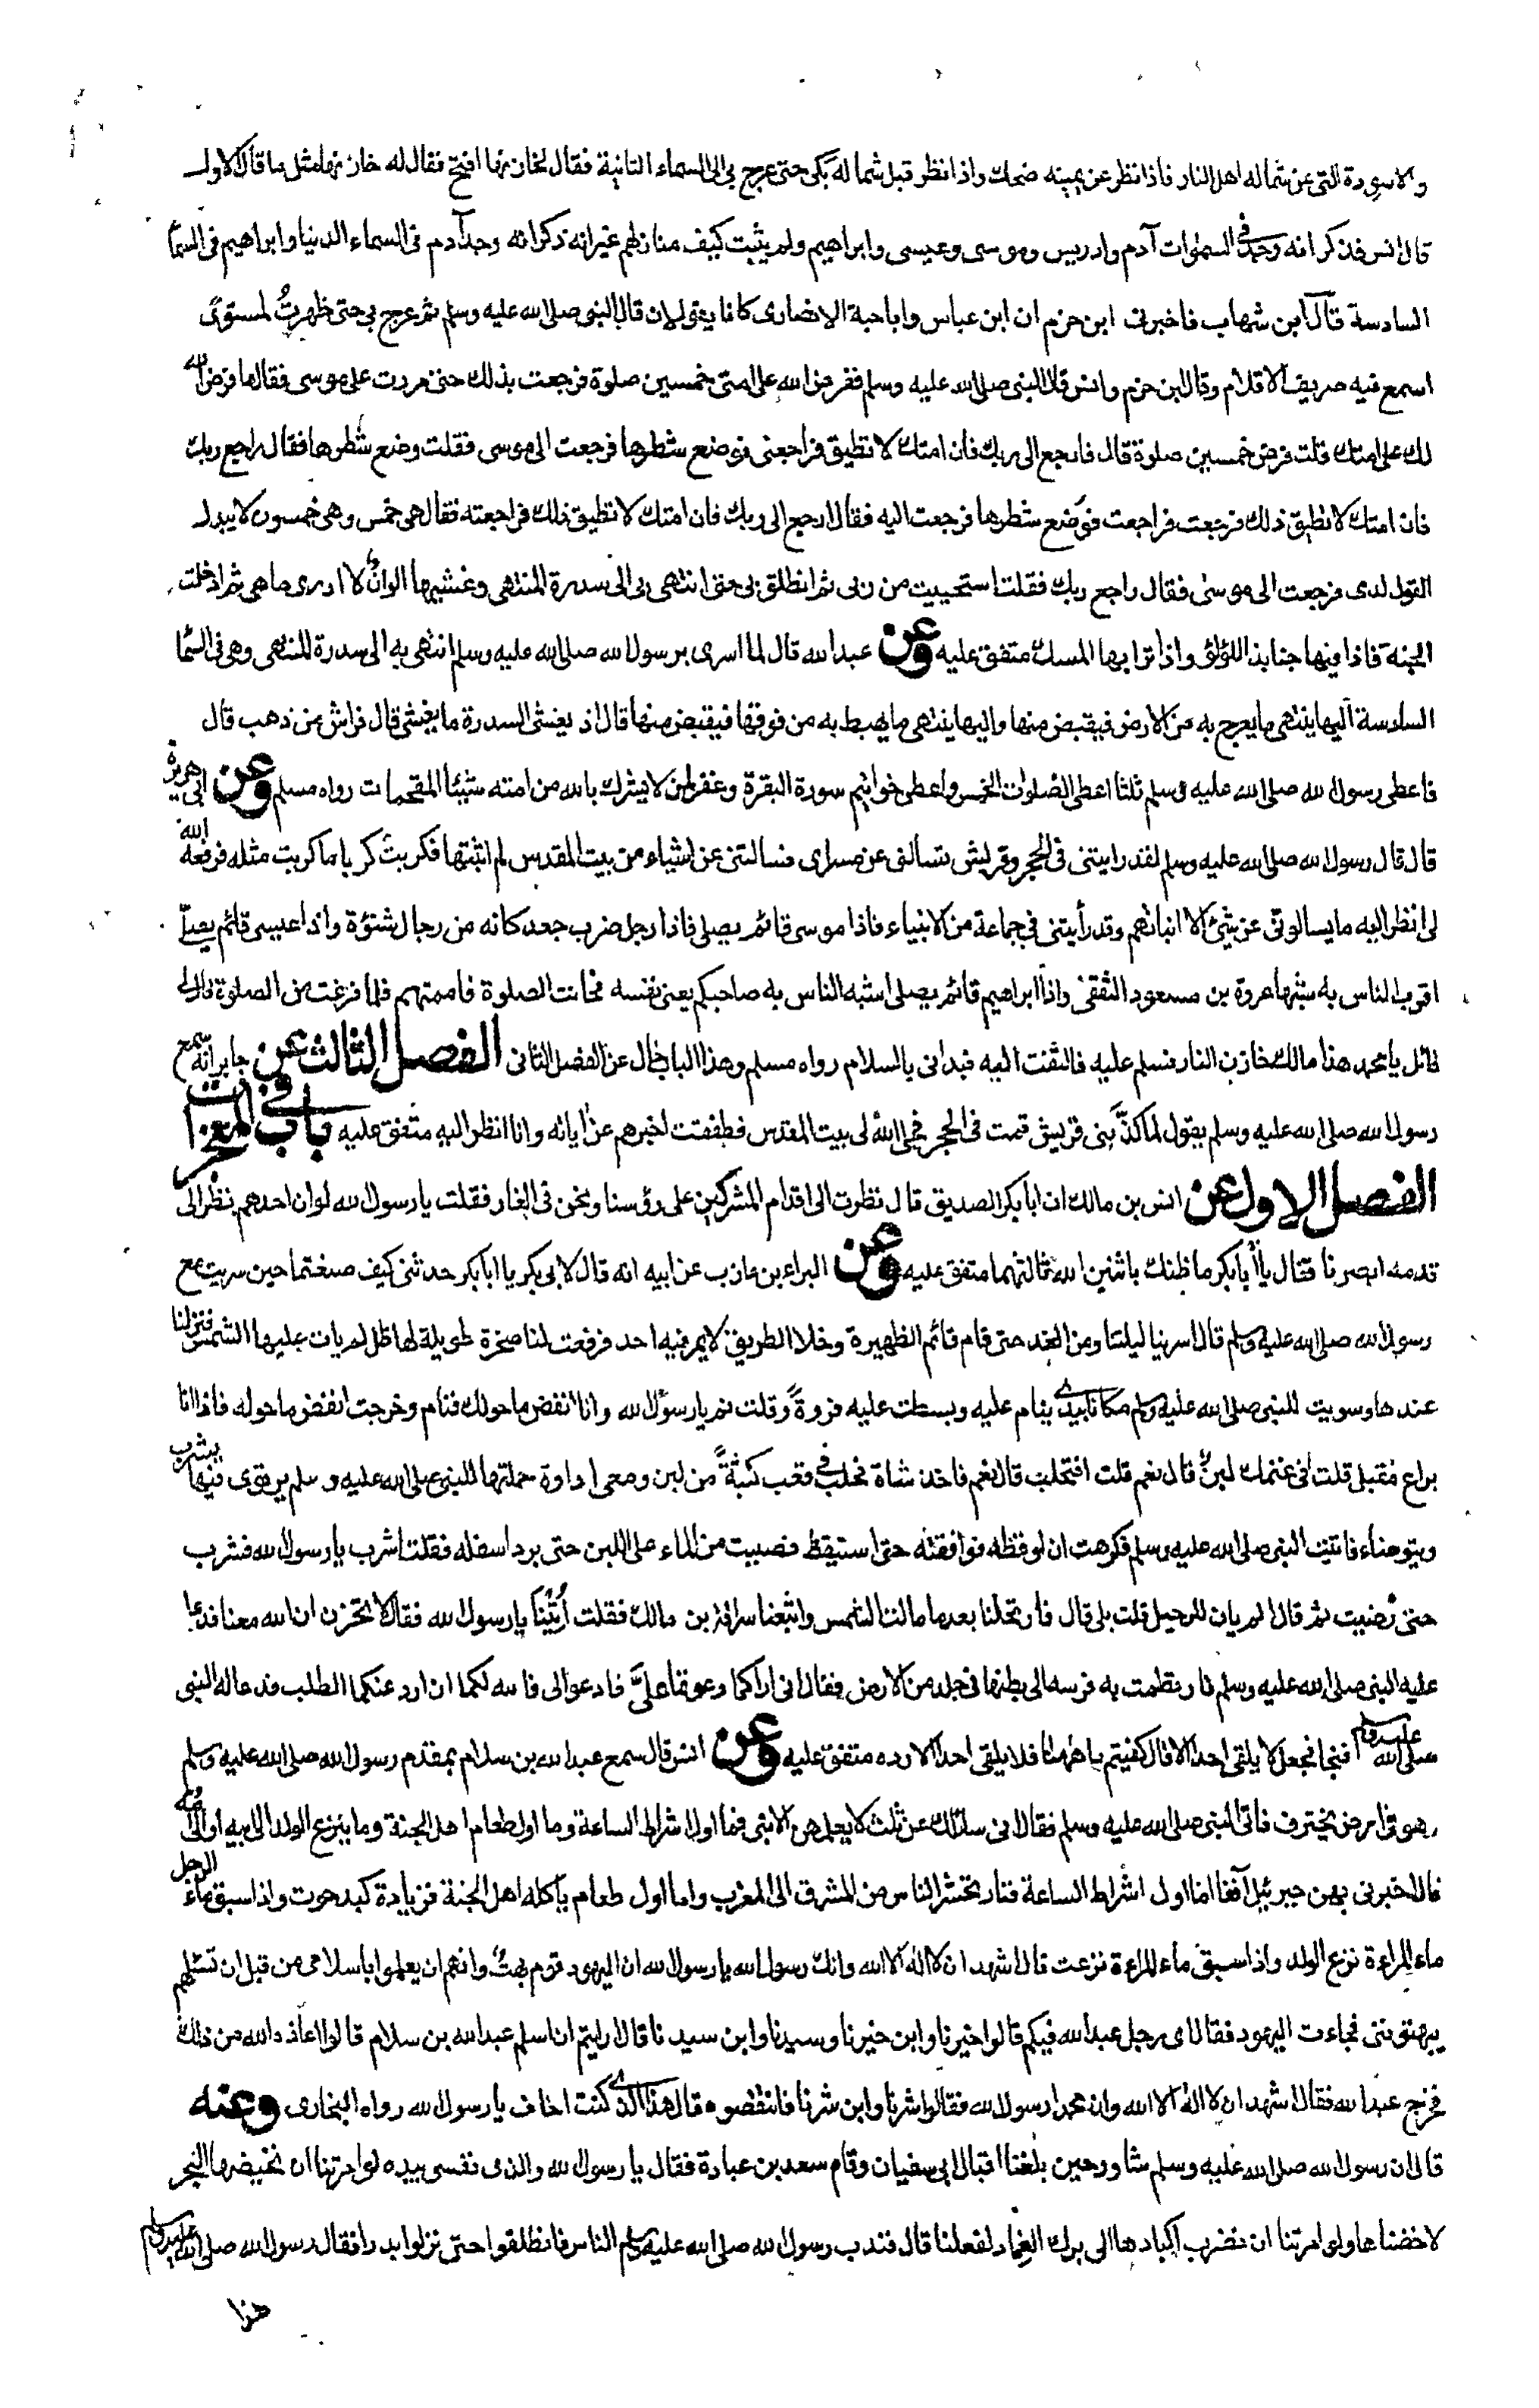 والاسودة التى عن شماله اهل النار فاذا نظر عن يمينه ضحك واذا نظر قبل شماله بكى حتى عرج بى الى السماء الثانية فقال لخازنها افتح فقال له خازنها مثل ما قال الاول
قال انس فذكر انه وجد فى السموات آدم وادريس وموسى وعيسى وابراهيم ولم يثبت كيف منازلهم غير انه ذكر انه وجد آدم فى السماء الدنيا وابراهيم فى السما
السادسة قال ابن شهاب فاخبرنى ابن حزم ان ابن عباس وابا حبة الانصارى كانا يقولان قال النبى صلى الله عليه وسلم ثم عرج بى حتى ظهرت لمستوى
اسمع فيه صريف الاقلام وقال ابن حزم وانس قال النبى صلى الله عليه وسلم ففرض الله على امتى خمسين صلوة فرجعت بذلك حتى مررت على موسى فقال ما فرض الله
لك على امتك قلت فرض خمسين صلوة قال فارجع الى ربك فان امتك لا تطيق فراجعنى فوضع شطرها فرجعت الى موسى فقلت وضع شطرها فقال راجع ربك
فان امتك لا تطيق ذلك فرجعت فراجعت فوضع شطرها فرجعت اليه فقال ارجع الى ربك فان امتك لا تطيق ذلك فراجعته فقال هى خمس وهى خمسون لا يبدل
القول لدى فرجعت الى موسى فقال راجع ربك فقلت استحييت من ربى ثم انطلق بى حتى انتهى بى الى سدرة المنتهى وغشيها الوان لا ادرى ما هى ثم ادخلت
الجنة فاذا فيها جنابذ اللؤلؤ واذا ترابها المسك متفق عليه وعن عبد الله قال لما اسرى برسول الله صلى الله عليه وسلم انتهى به الى سدرة المنتهى وهى فى السما
السادسة اليها ينتهى ما يعرج به من الارض فيقبض منها واليها ينتهى ما يهبط به من فوقها فيقبض منها قال اذ يغشى السدرة ما يغشى قال فراش من ذهب قال
فاعطى رسول الله صلى الله عليه وسلم ثلثا اعطى الصلوات الخمس واعطى خواتيم سورة البقرة وغفر لمن لا يشرك بالله من امته شيئا المقحمات رواه مسلم وعن ابى هريرة
قال قال رسول الله صلى الله عليه وسلم لقد رايتنى فى الحجر وقريش تسالنى عن مسراى فسالتنى عن اشياء من بيت المقدس لم اثبتها فكربت كربا ما كربت مثله فرفعه الله
لى انظر اليه ما يسالونى عن شئ الا انباتهم وقد رأيتنى فى جماعة من الانبياء فاذا موسى قائم يصلى فاذا رجل ضرب جعد كانه من رجال شنؤة واذا عيسى قائم يصلى
اقرب الناس به شبها عروة بن مسعود الثقفى واذا ابراهيم قائم يصلى اشبه الناس به صاحبكم يعنى نفسه فحانت الصلوة فاممتهم فلما فرغت من الصلوة قال لى
قائل يا محمد هذا مالك خازن النار فسلم عليه فالتفت اليه فبدانى بالسلام رواه مسلم وهذا الباب خال عن الفصل الثانى الفصل الثالث عن جابر انه سمع
رسول الله صلى الله عليه وسلم يقول لما كذبنى قريش قمت فى الحجر فجلى الله لى بيت المقدس فطفقت اخبرهم عن اياته وانا انظر اليه متفق عليه باب فى المعجزات
الفصل الاول عن انس بن مالك ان ابا بكر الصديق قال نظرت الى اقدام المشركين على رؤسنا ونحن فى الغار فقلت يا رسول الله لو ان احدهم نظر الى
قدمه ابصرنا فقال يا ابا بكر ما ظنك باثنين الله ثالثهما متفق عليه وعن البراء بن عازب عن ابيه انه قال لابى بكر يا ابا بكر حدثنى كيف صنعتما حين سريت مع
رسول الله صلى الله عليه وسلم قال اسرينا ليلتنا ومن الغد حتى قام قائم الظهيرة وخلا الطريق لا يمر فيه احد فرفعت لنا صخرة طويلة لها ظل لم يات عليها الشمس فنزلنا
عندها وسويت للنبى صلى الله عليه وسلم مكانا بيدى ينام عليه وبسطت عليه فروة وقلت نم يا رسول الله وانا انفض ما حولك فنام وخرجت انفض ما حوله فاذا انا
براع مقبل قلت افى غنمك لبن قال نعم قلت افتحلب قال نعم فاخذ شاة فحلب فى قعب كثبة من لبن ومعى اداوة حملتها للنبى صلى الله عليه وسلم يرتوى فيها يشرب
ويتوضأ فاتيت النبى صلى الله عليه وسلم فكرهت ان اوقظه فوافقته حتى استيقظ فصببت من الماء على اللبن حتى برد اسفله فقلت اشرب يا رسول الله فشرب
حتى رضيت ثم قال الم يان للرحيل قلت بلى قال فارتحلنا بعد ما مالت الشمس واتبعنا سراقة بن مالك فقلت اتينا يا رسول الله فقال لا تحزن ان الله معنا فدعا
عليه النبى صلى الله عليه وسلم فارتطمت به فرسه الى بطنها فى جلد من الارض فقال انى اراكما دعوتما على فادعوا لى فالله لكما ان ارد عنكما الطلب فدعا له النبى
صلى الله عليه وسلم فنجا فجعل لا يلقى احدا الا قال كفيتم ما ههنا فلا يلقى احدا الا رده متفق عليه وعن انس قال سمع عبد الله بن سلام بمقدم رسول الله صلى الله عليه وسلم
وهو فى ارض يخترف فاتى النبى صلى الله عليه وسلم فقال انى سائلك عن ثلث لا يعلمهن الا نبى فما اول اشراط الساعة وما اول طعام اهل الجنة وما ينزع الولد الى ابيه او الى امه
قال اخبرنى بهن جبرئيل آنفا اما اول اشراط الساعة فنار تحشر الناس من المشرق الى المغرب واما اول طعام ياكله اهل الجنة فزيادة كبد حوت واذا سبق ماء الرجل
ماء المراءة نزع الولد واذا سبق ماء المراءة نزعت قال اشهد ان لا اله الا الله وانك رسول الله يا رسول الله ان اليهود قوم بهت وانهم ان يعلموا باسلامى من قبل ان تسئلهم
يبهتوننى فجاءت اليهود فقال اى رجل عبد الله فيكم قالوا خيرنا وابن خيرنا وسيدنا وابن سيدنا قال ارايتم ان اسلم عبد الله بن سلام قالوا اعاذه الله من ذلك
فخرج عبد الله فقال اشهد ان لا اله الا الله وان محمدا رسول الله فقالوا شرنا وابن شرنا فانتقصوه قال هذا الذى كنت اخاف يا رسول الله رواه البخارى وعنه
قال ان رسول الله صلى الله عليه وسلم شاور حين بلغنا اقبال ابى سفيان وقام سعد بن عبادة فقال يا رسول الله والذى نفسى بيده لو امرتنا ان نخيضها البحر
لاخضناها ولو امرتنا ان نضرب اكبادها الى برك الغماد لفعلنا قال فندب رسول الله صلى الله عليه وسلم الناس فانطلقوا حتى نزلوا بدرا فقال رسول الله صلى الله عليه وسلم
هذا